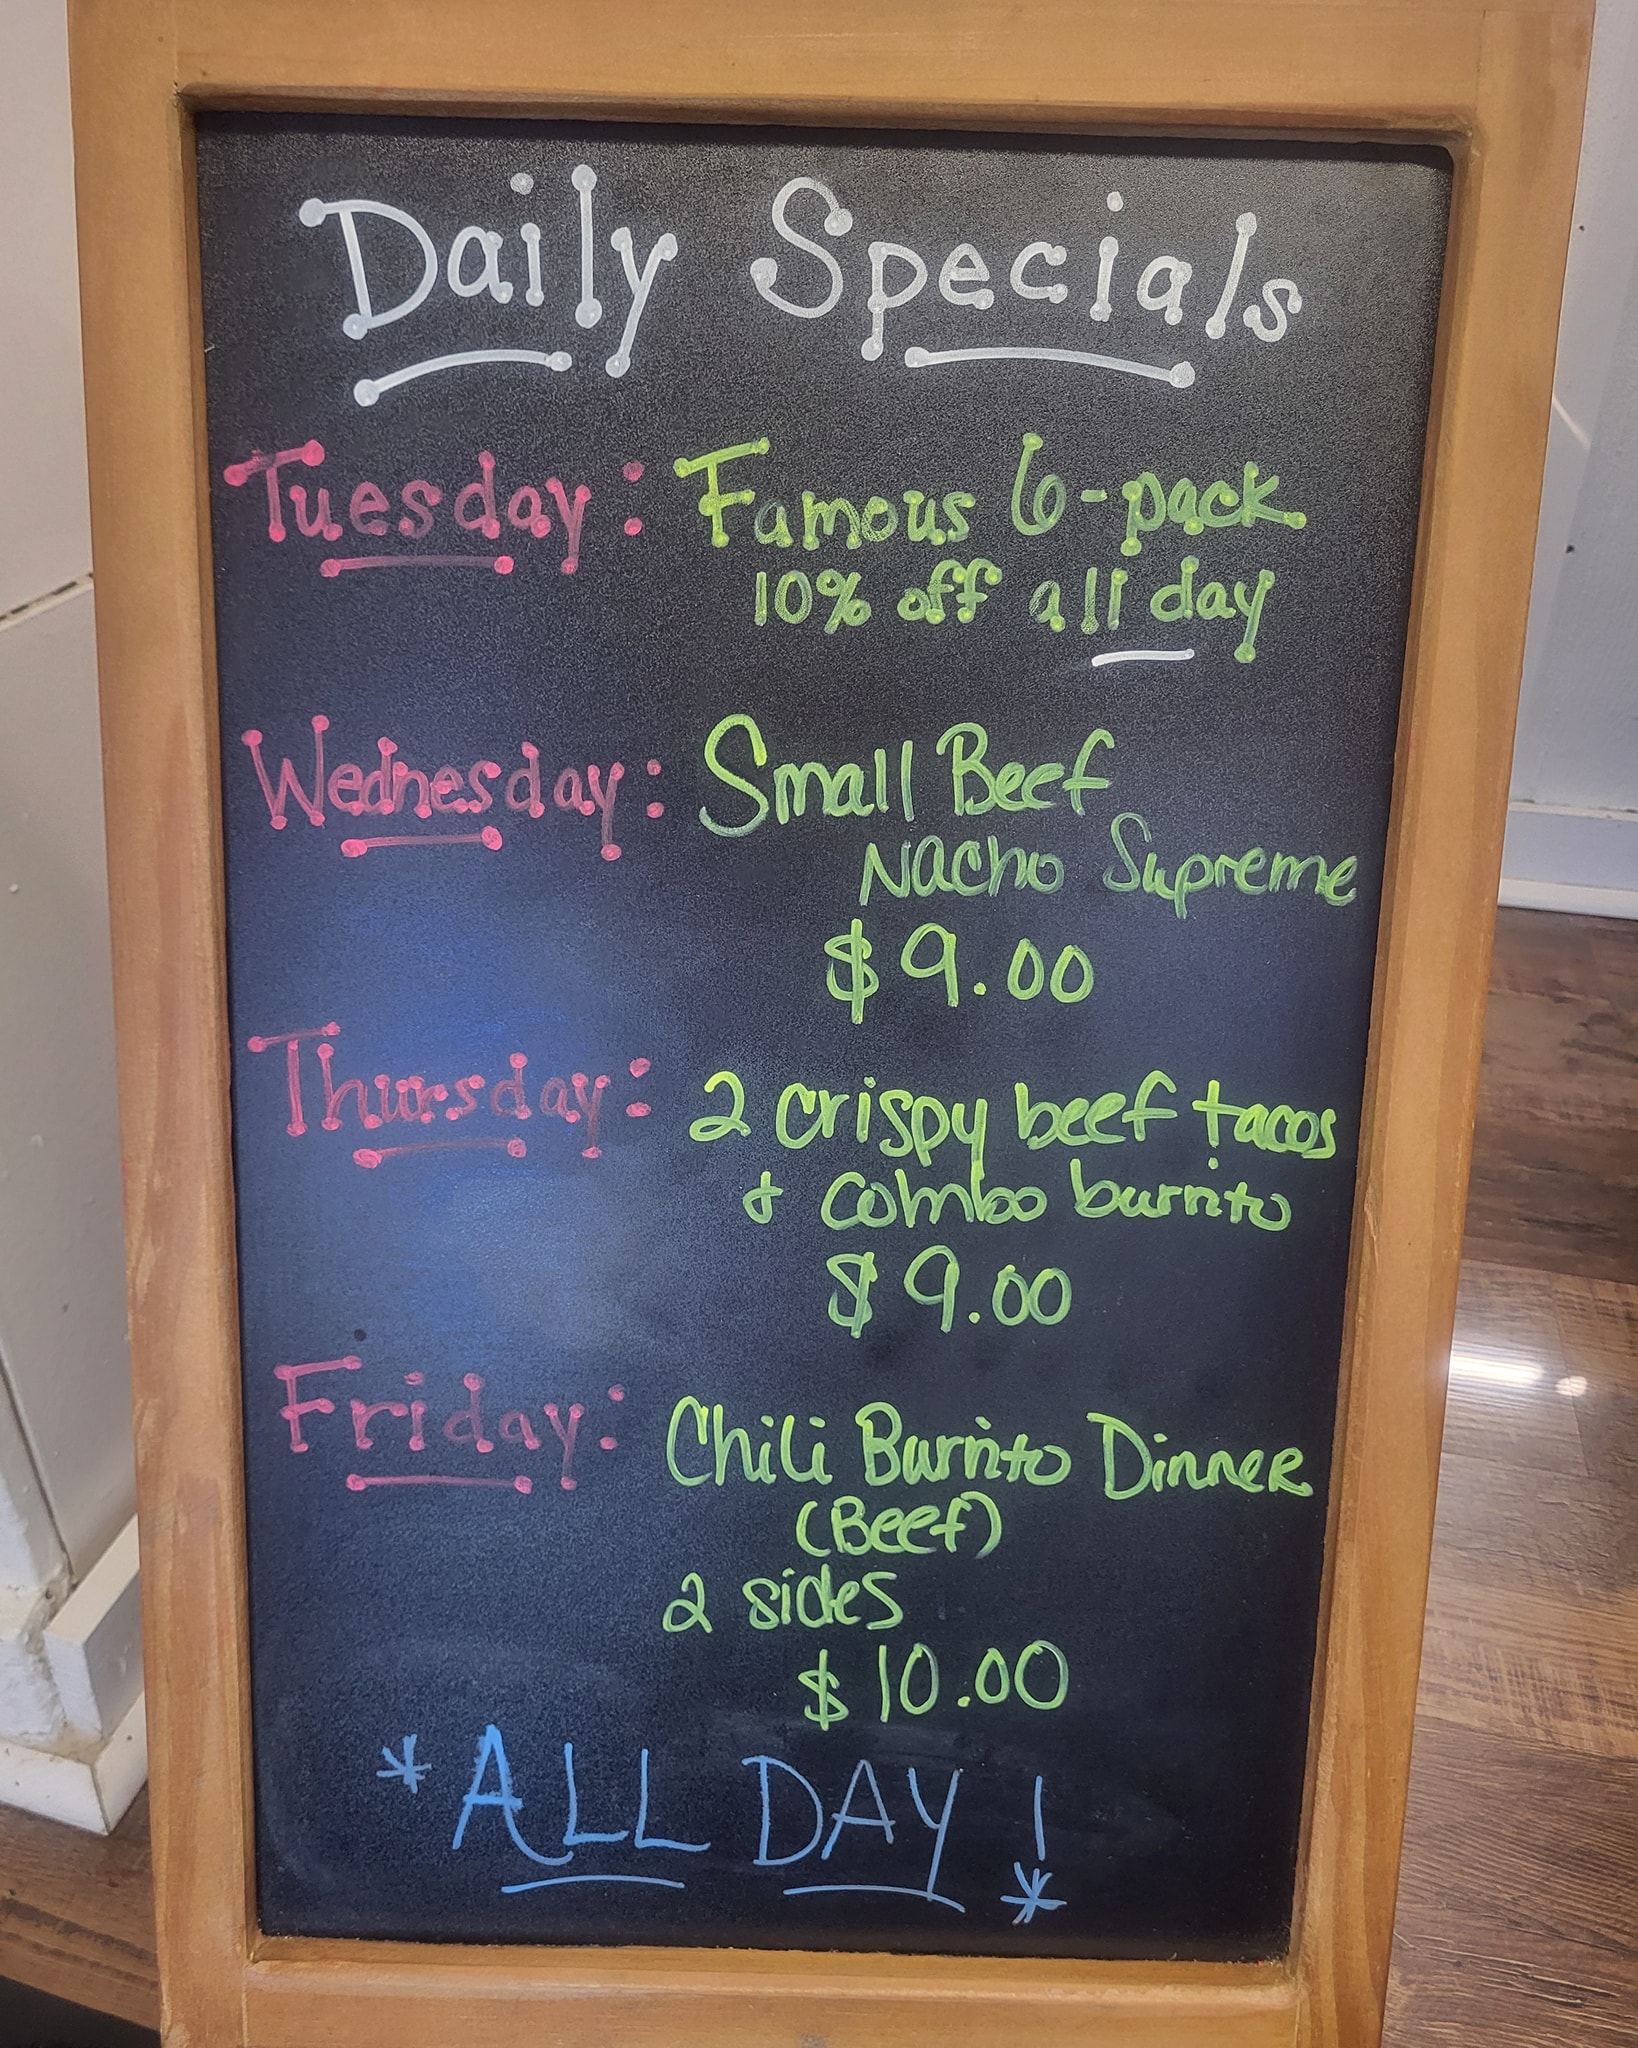 Daily Specials
Tuesday: Famous 6-pack
10% off all day
Wednesday: Small Beef
Nacho Supreme
$9.00
Thursday: 2 crispy beef tacos
+ combo burrito
$9.00
Friday: Chili Burrito Dinner
(Beef)
2 sides
$10.00
*ALL DAY!*